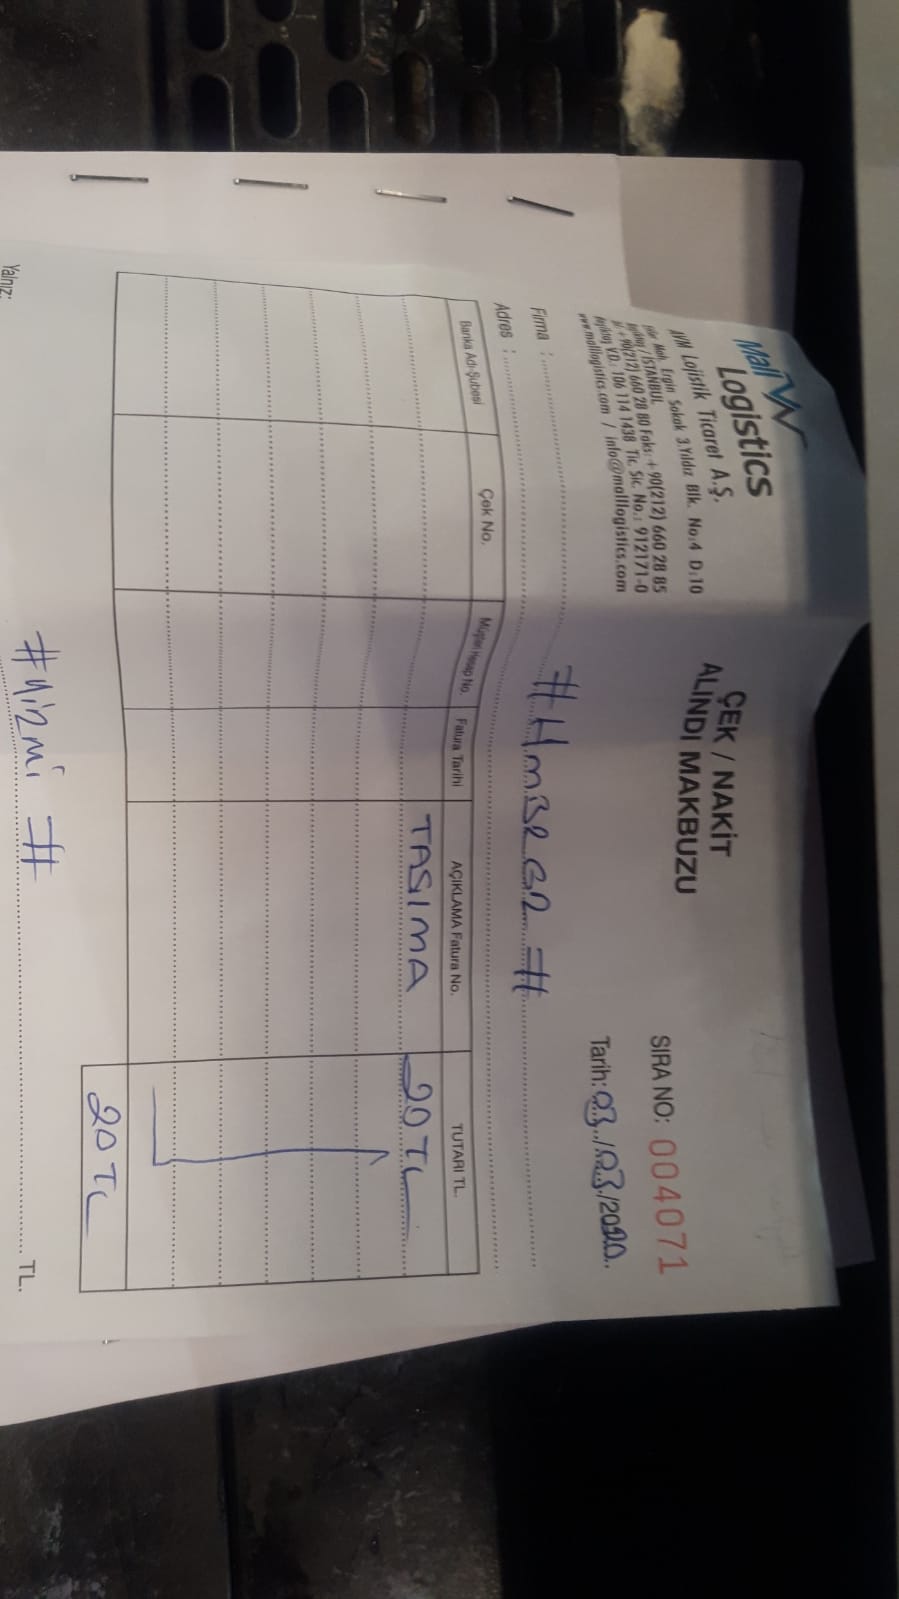 Mall
Logistics
Lojistik Ticaret A.Ş.
Mah. Ergin Sokak 3.Yıldız Blk. No:4 D:10
/ İSTANBUL
+90(212) 660 28 80 Faks: +90(212) 660 28 85
VD.: 106 114 1438 Tic. Sic. No.: 912171-0
www.malllogistics.com / info@malllogistics.com
ÇEK / NAKİT
ALINDI MAKBUZU
SIRA NO: 004071
Tarih: 03/03/2020
Firma :
Adres :
Banka Adı-Şubesi Çek No. Müşteri Hesap No. Fatura Tarihi AÇIKLAMA Fatura No. TUTARI TL.
TASIMA 20 TL
20 TL
Yalnız: # yirmi # TL.